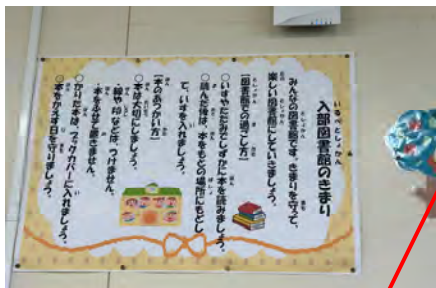 入部図書館のきまり
みんなの図書館です。きまりを守って、
楽しい図書館にしていきましょう。
【図書館での過ごし方】
○いすやたたみでしずかに本を読みましょう。
○読んだ後は、本をもとの場所にもどし
て、いすを入れましょう。
【本のあつかい方】
○本は大切にしましょう。
・線や印などは、つけません。
・本をふせて置きません。
○かりた本は、ブックカバーに入れましょう。
○本をかえす日を守りましょう。